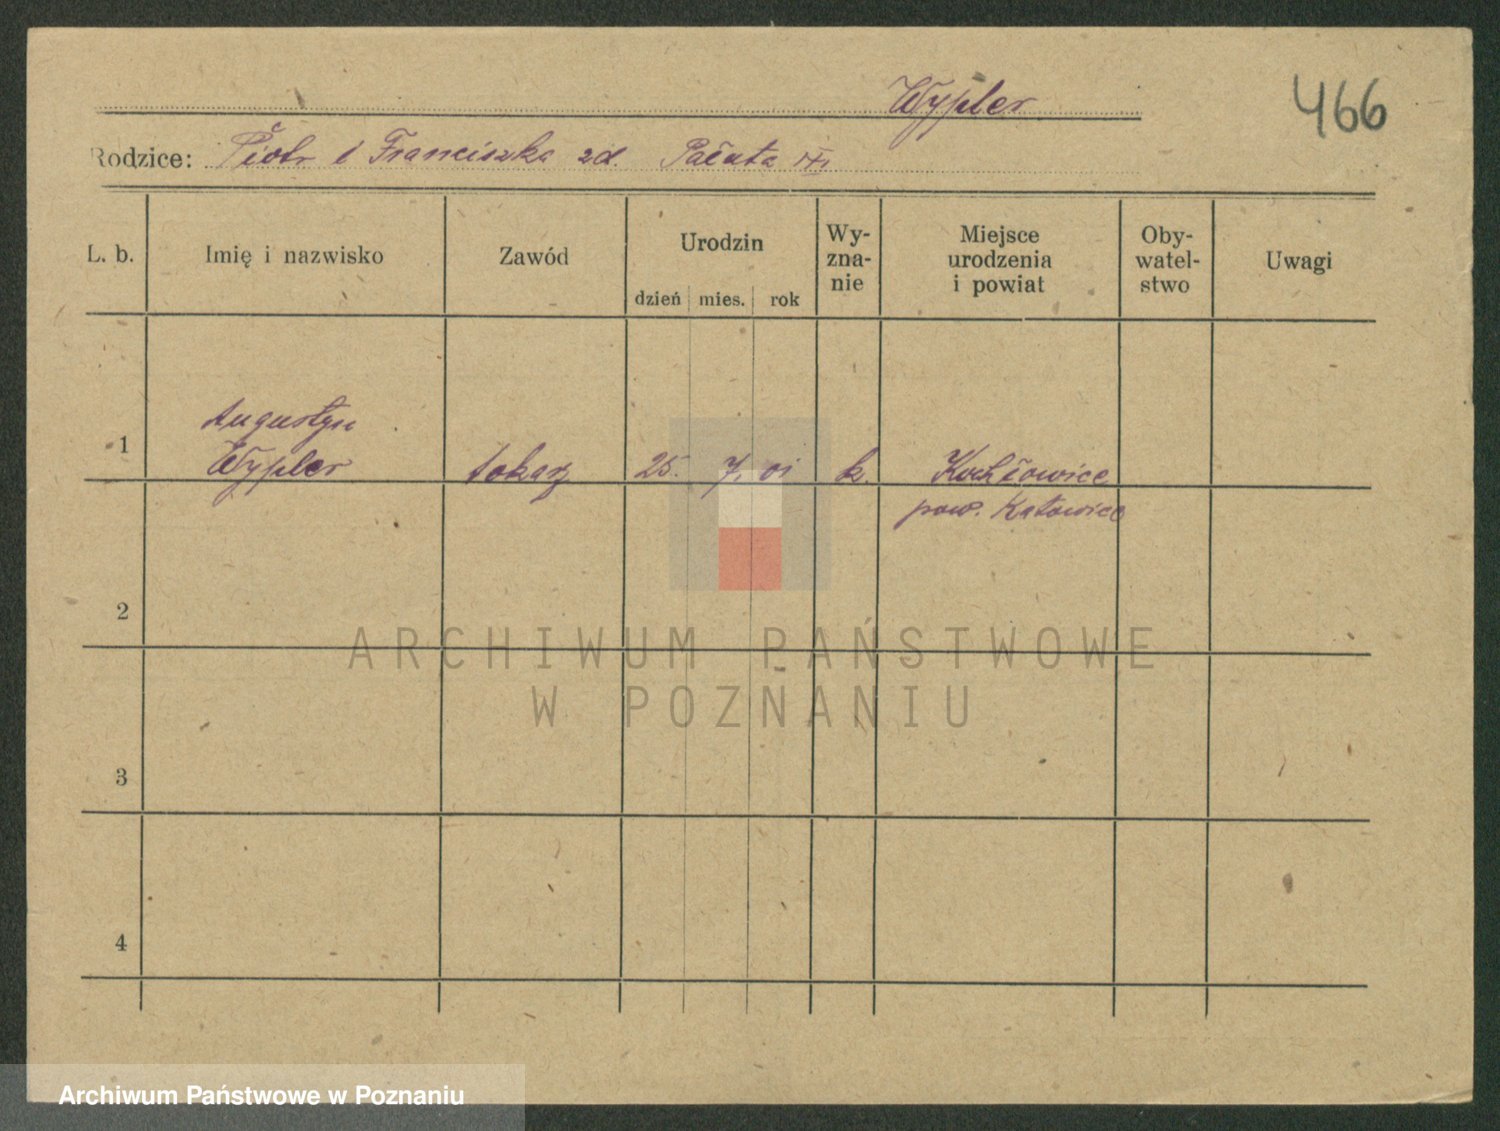 Wypler
466
Rodzice: Piotr i Franciszka zd. Pałuta
L. b.
Imię i nazwisko
Zawód
Urodzin
dzień mies. rok
Wy-
zna-
nie
Miejsce
urodzenia
i powiat
Oby-
watel-
stwo
Uwagi
1
Augustyn
Wypler
tokarz
25. 7. 01
k.
Kochłowice
pow. Katowice
2
3
4
ARCHIWUM PAŃSTWOWE
W POZNANIU
Archiwum Państwowe w Poznaniu